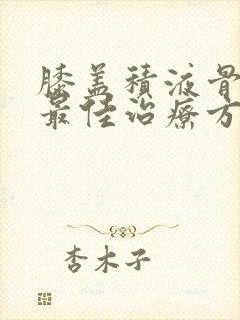 膝盖積液骨
最佳治療方
杏木子